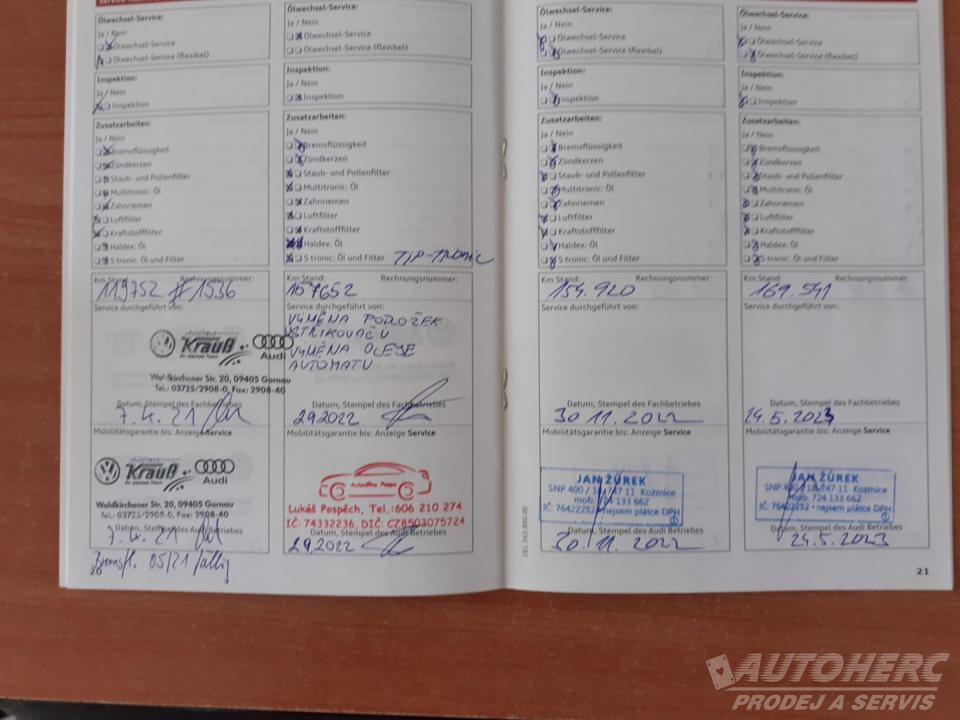 Ölwechsel-Service:
Ja / Nein
Ölwechsel-Service
Ölwechsel-Service (flexibel)
Inspektion:
Ja / Nein
Inspektion
Zusatzarbeiten:
Ja / Nein
Bremsflüssigkeit
Zündkerzen
Staub- und Pollenfilter
Multitronic: Öl
Zahnriemen
Luftfilter
Kraftstofffilter
Haldex: Öl
S tronic: Öl und Filter
Km Stand: Rechnungsnummer:
119752 #1536
Service durchgeführt von:
Autohaus
Krauß
Ihr starkes Team
Audi
Waldkirchener Str. 20, 09405 Gornau
Tel.: 03725/2908-0, Fax: 2908-40
Datum, Stempel des Fachbetriebes
7.4.21
Mobilitätsgarantie bis: Anzeige Service
Krauß
Audi
Waldkirchener Str. 20, 09405 Gornau
Tel.: 03725/2908-0, Fax: 2908-40
Datum, Stempel des Audi Betriebes
7.4.21
Bremsfl. 05/21 fällig
20
Ölwechsel-Service:
Ja / Nein
Ölwechsel-Service
Ölwechsel-Service (flexibel)
Inspektion:
Ja / Nein
Inspektion
Zusatzarbeiten:
Ja / Nein
Bremsflüssigkeit
Zündkerzen
Staub- und Pollenfilter
Multitronic: Öl
Zahnriemen
Luftfilter
Kraftstofffilter
Haldex: Öl
S tronic: Öl und Filter TIP-TRONIC
Km Stand: Rechnungsnummer:
157652
Service durchgeführt von:
VÝMĚNA PODLOŽEK
VSTŘIKOVAČŮ
VÝMĚNA OLEJE
AUTOMATU
Datum, Stempel des Fachbetriebes
2.9.2022
Mobilitätsgarantie bis: Anzeige Service
Lukáš Pospěch, Tel.:606 210 274
IČ: 74332236, DIČ: CZ8503075724
Datum, Stempel des Audi Betriebes
2.9.2022
Ölwechsel-Service:
Ja / Nein
Ölwechsel-Service
Ölwechsel-Service (flexibel)
Inspektion:
Ja / Nein
Inspektion
Zusatzarbeiten:
Ja / Nein
Bremsflüssigkeit
Zündkerzen
Staub- und Pollenfilter
Multitronic: Öl
Zahnriemen
Luftfilter
Kraftstofffilter
Haldex: Öl
S tronic: Öl und Filter
Km Stand: Rechnungsnummer:
159.920
Service durchgeführt von:
Datum, Stempel des Fachbetriebes
30.11.2022
Mobilitätsgarantie bis: Anzeige Service
JAN ŽŮREK
SNP 400 / 18, 747 11 Kozmice
mob. 724 133 662
IČ: 76422232 - nejsem plátce DPH
Datum, Stempel des Audi Betriebes
30.11.2022
Ölwechsel-Service:
Ja / Nein
Ölwechsel-Service
Ölwechsel-Service (flexibel)
Inspektion:
Ja / Nein
Inspektion
Zusatzarbeiten:
Ja / Nein
Bremsflüssigkeit
Zündkerzen
Staub- und Pollenfilter
Multitronic: Öl
Zahnriemen
Luftfilter
Kraftstofffilter
Haldex: Öl
S tronic: Öl und Filter
Km Stand: Rechnungsnummer:
169.541
Service durchgeführt von:
Datum, Stempel des Fachbetriebes
24.5.2023
Mobilitätsgarantie bis: Anzeige Service
JAN ŽŮREK
SNP 400 / 18, 747 11 Kozmice
mob. 724 133 662
IČ: 76422232 - nejsem plátce DPH
Datum, Stempel des Audi Betriebes
24.5.2023
21
AUTOHERC
PRODEJ A SERVIS